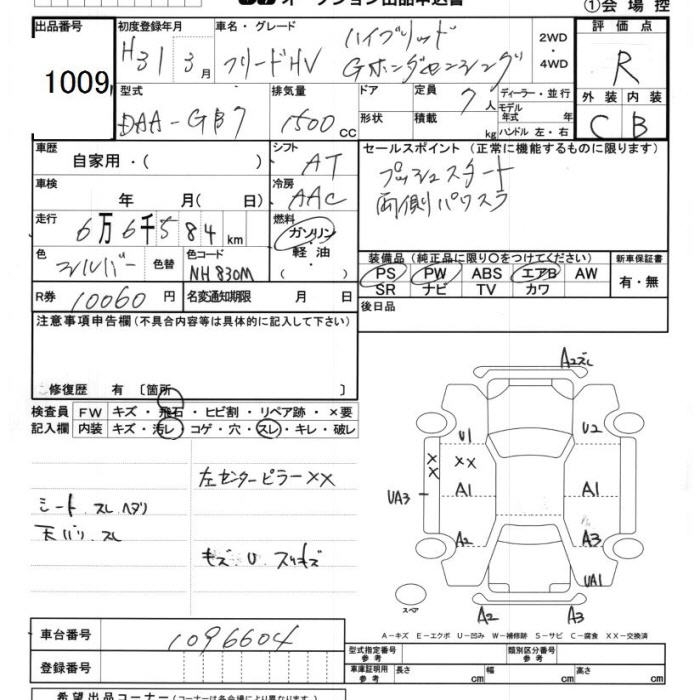 オークション出品申込書
①会場控
出品番号 1009
初度登録年月 H31 3月
車名・グレード フリードHV ハイブリッド Gホンダセンシング
2WD ・ 4WD
評価点 R
外装 C 内装 B
型式 DAA-GB7
排気量 1500 cc
ドア 形状
定員 7人
積載 kg
ディーラー・並行
モデル年式 年式
ハンドル 左・右
車歴 自家用・( )
シフト AT
セールスポイント (正常に機能するものに限ります)
プッシュスタート
両側パワスラ
車検 年 月( 日)
冷房 AAC
走行 6万6千584km
燃料 ガソリン・軽油・( )
色 シルバー 色替
色コード NH830M
装備品 (純正品に限り〇をつけてください)
新車保証書
PS PW ABS エアB AW
SR ナビ TV カワ
有・無
R券 10060 円
名変通知期限 月 日
後日品
注意事項申告欄 (不具合内容等は具体的に記入して下さい)
修復歴 有 [箇所 ]
検査員 FW キズ・飛石・ヒビ割・リペア跡・×要
記入欄 内装 キズ・汚レ・コゲ・穴・スレ・キレ・破レ
左センターピラーXX
シート.スレ.ヘタリ
天バリ.スレ
キズ.U.スリキズ
A2スレ
U1 U2
XX XX
UA3 A1 A1
A2 A3
UA1
スペア
A2 A3
A-キズ E-エクボ U-凹み W-補修跡 S-サビ C-腐食 XX-交換済
車台番号 1096604
登録番号
型式指定番号 参考
類別区分番号 参考
車庫証明用 参考 長さ cm 幅 cm 高さ cm
希望出品コーナー